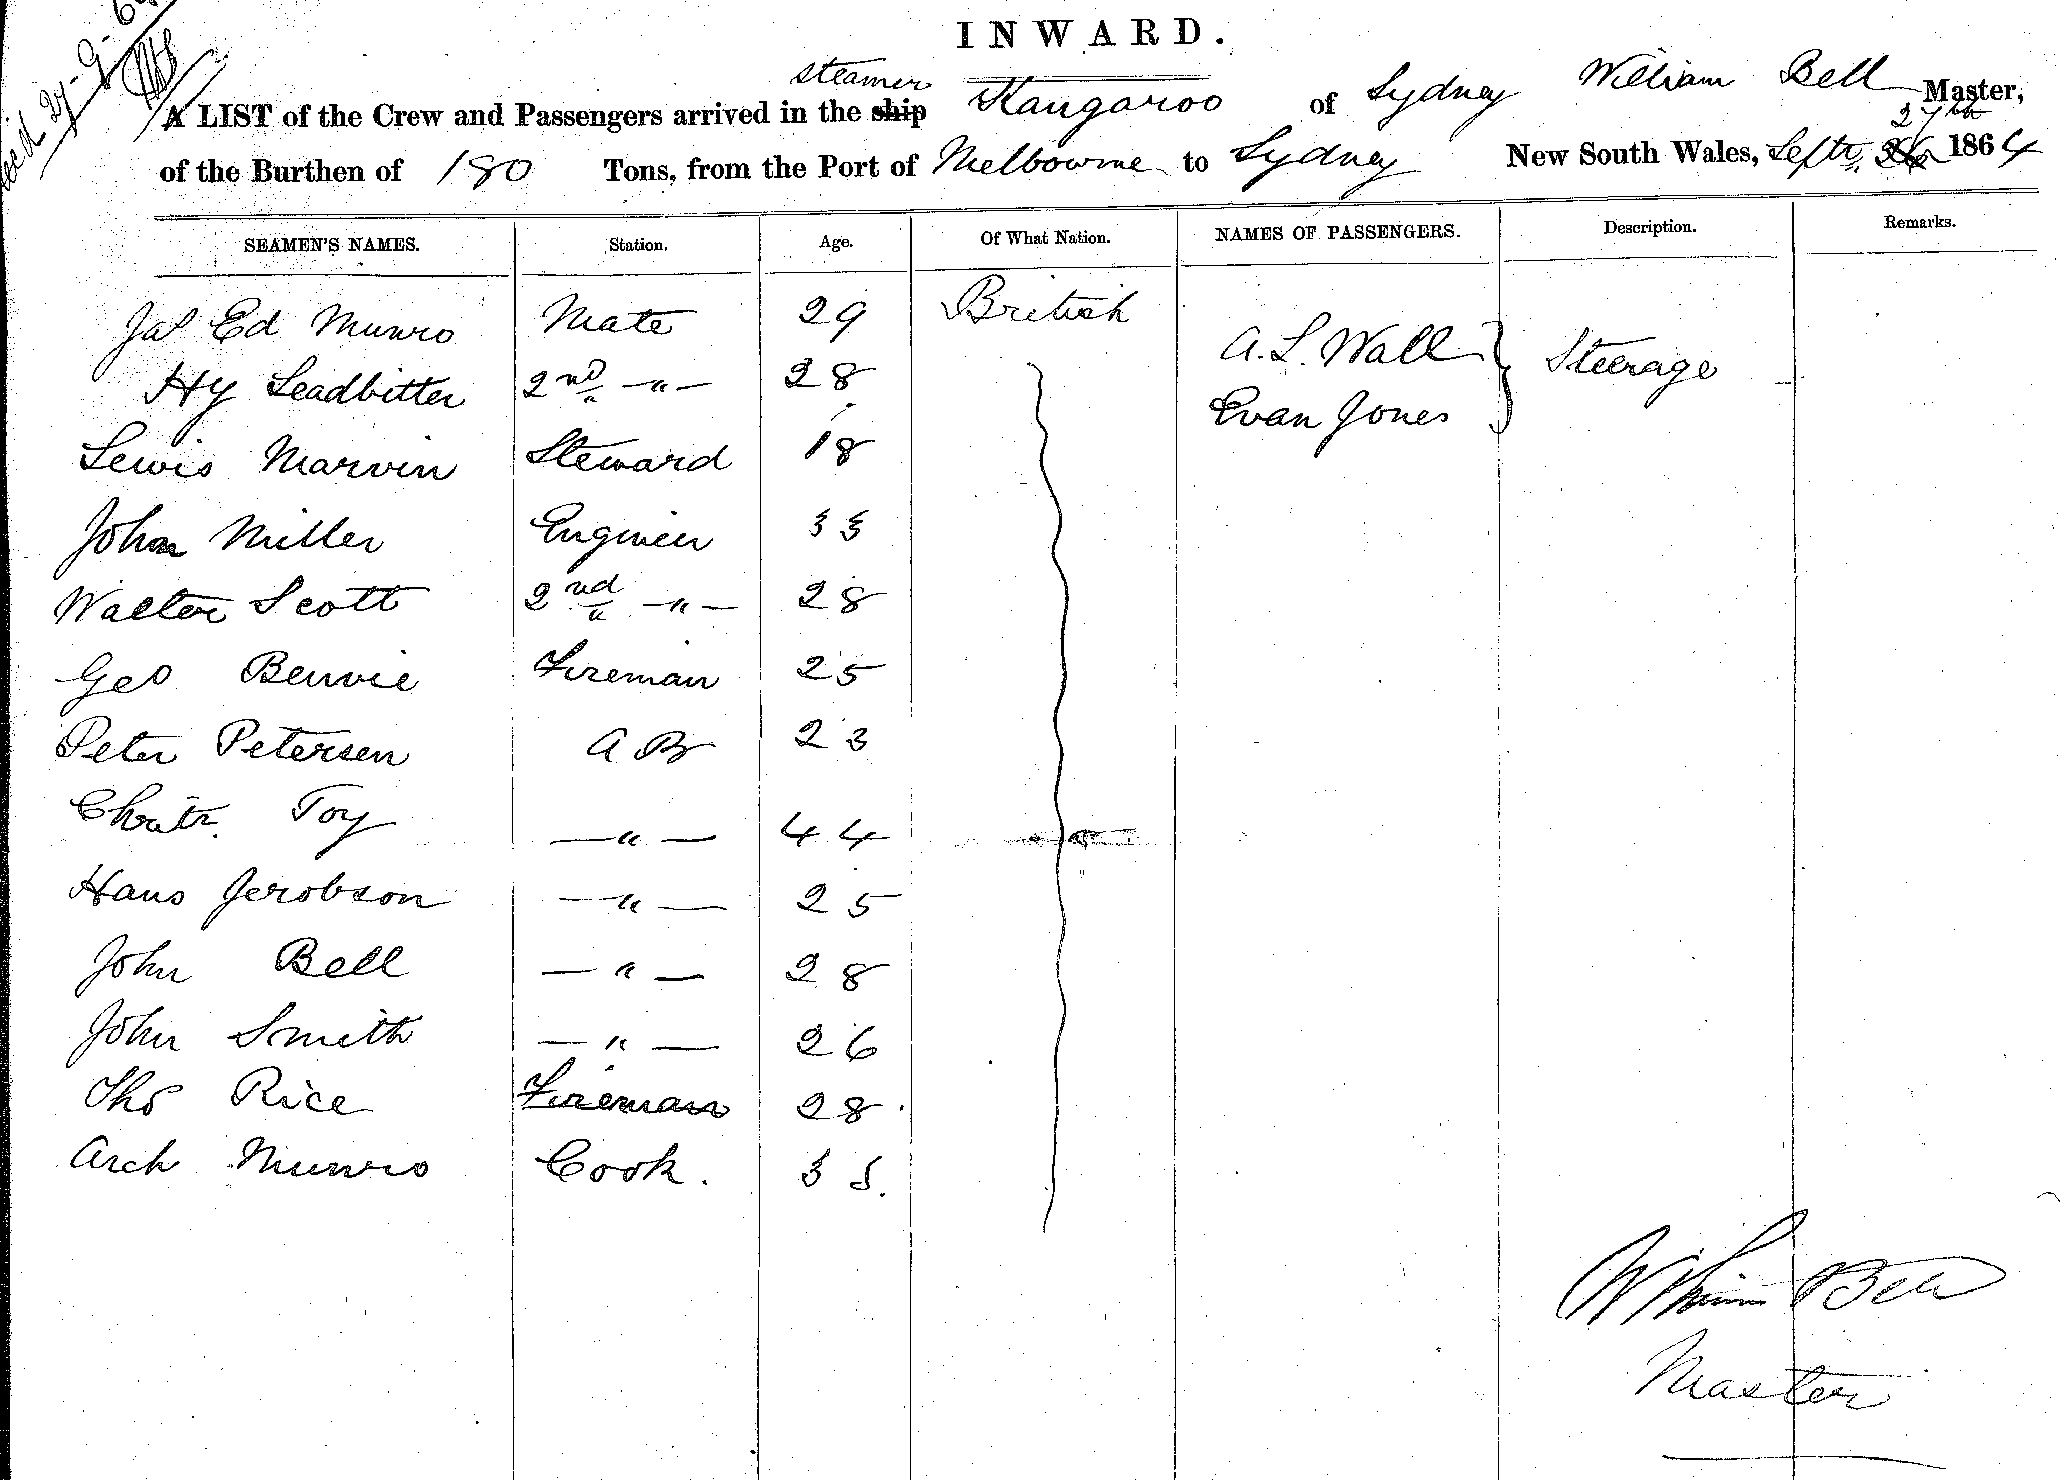 Recd 27-9-64
INWARD.
A LIST of the Crew and Passengers arrived in the ship steamer Kangaroo of Sydney William Bell Master,
of the Burthen of 180 Tons, from the Port of Melbourne to Sydney New South Wales, Septr. 26 27th 1864
SEAMEN'S NAMES. Station. Age. Of What Nation. NAMES OF PASSENGERS. Description. Remarks.
Jas Ed Munro Mate 29 British A. L. Wall Steerage
Hy Leadbitter 2nd " 28 Evan Jones
Lewis Marvin Steward 18
John Miller Engineer 33
Walter Scott 2nd " 28
Geo Bennie Fireman 25
Peter Petersen A B 23
Christr. Toy " 44
Hans Jerobson " 25
John Bell " 28
John Smith " 26
Thos Rice Fireman 28
Arch Munro Cook. 35.
William Bell
Master